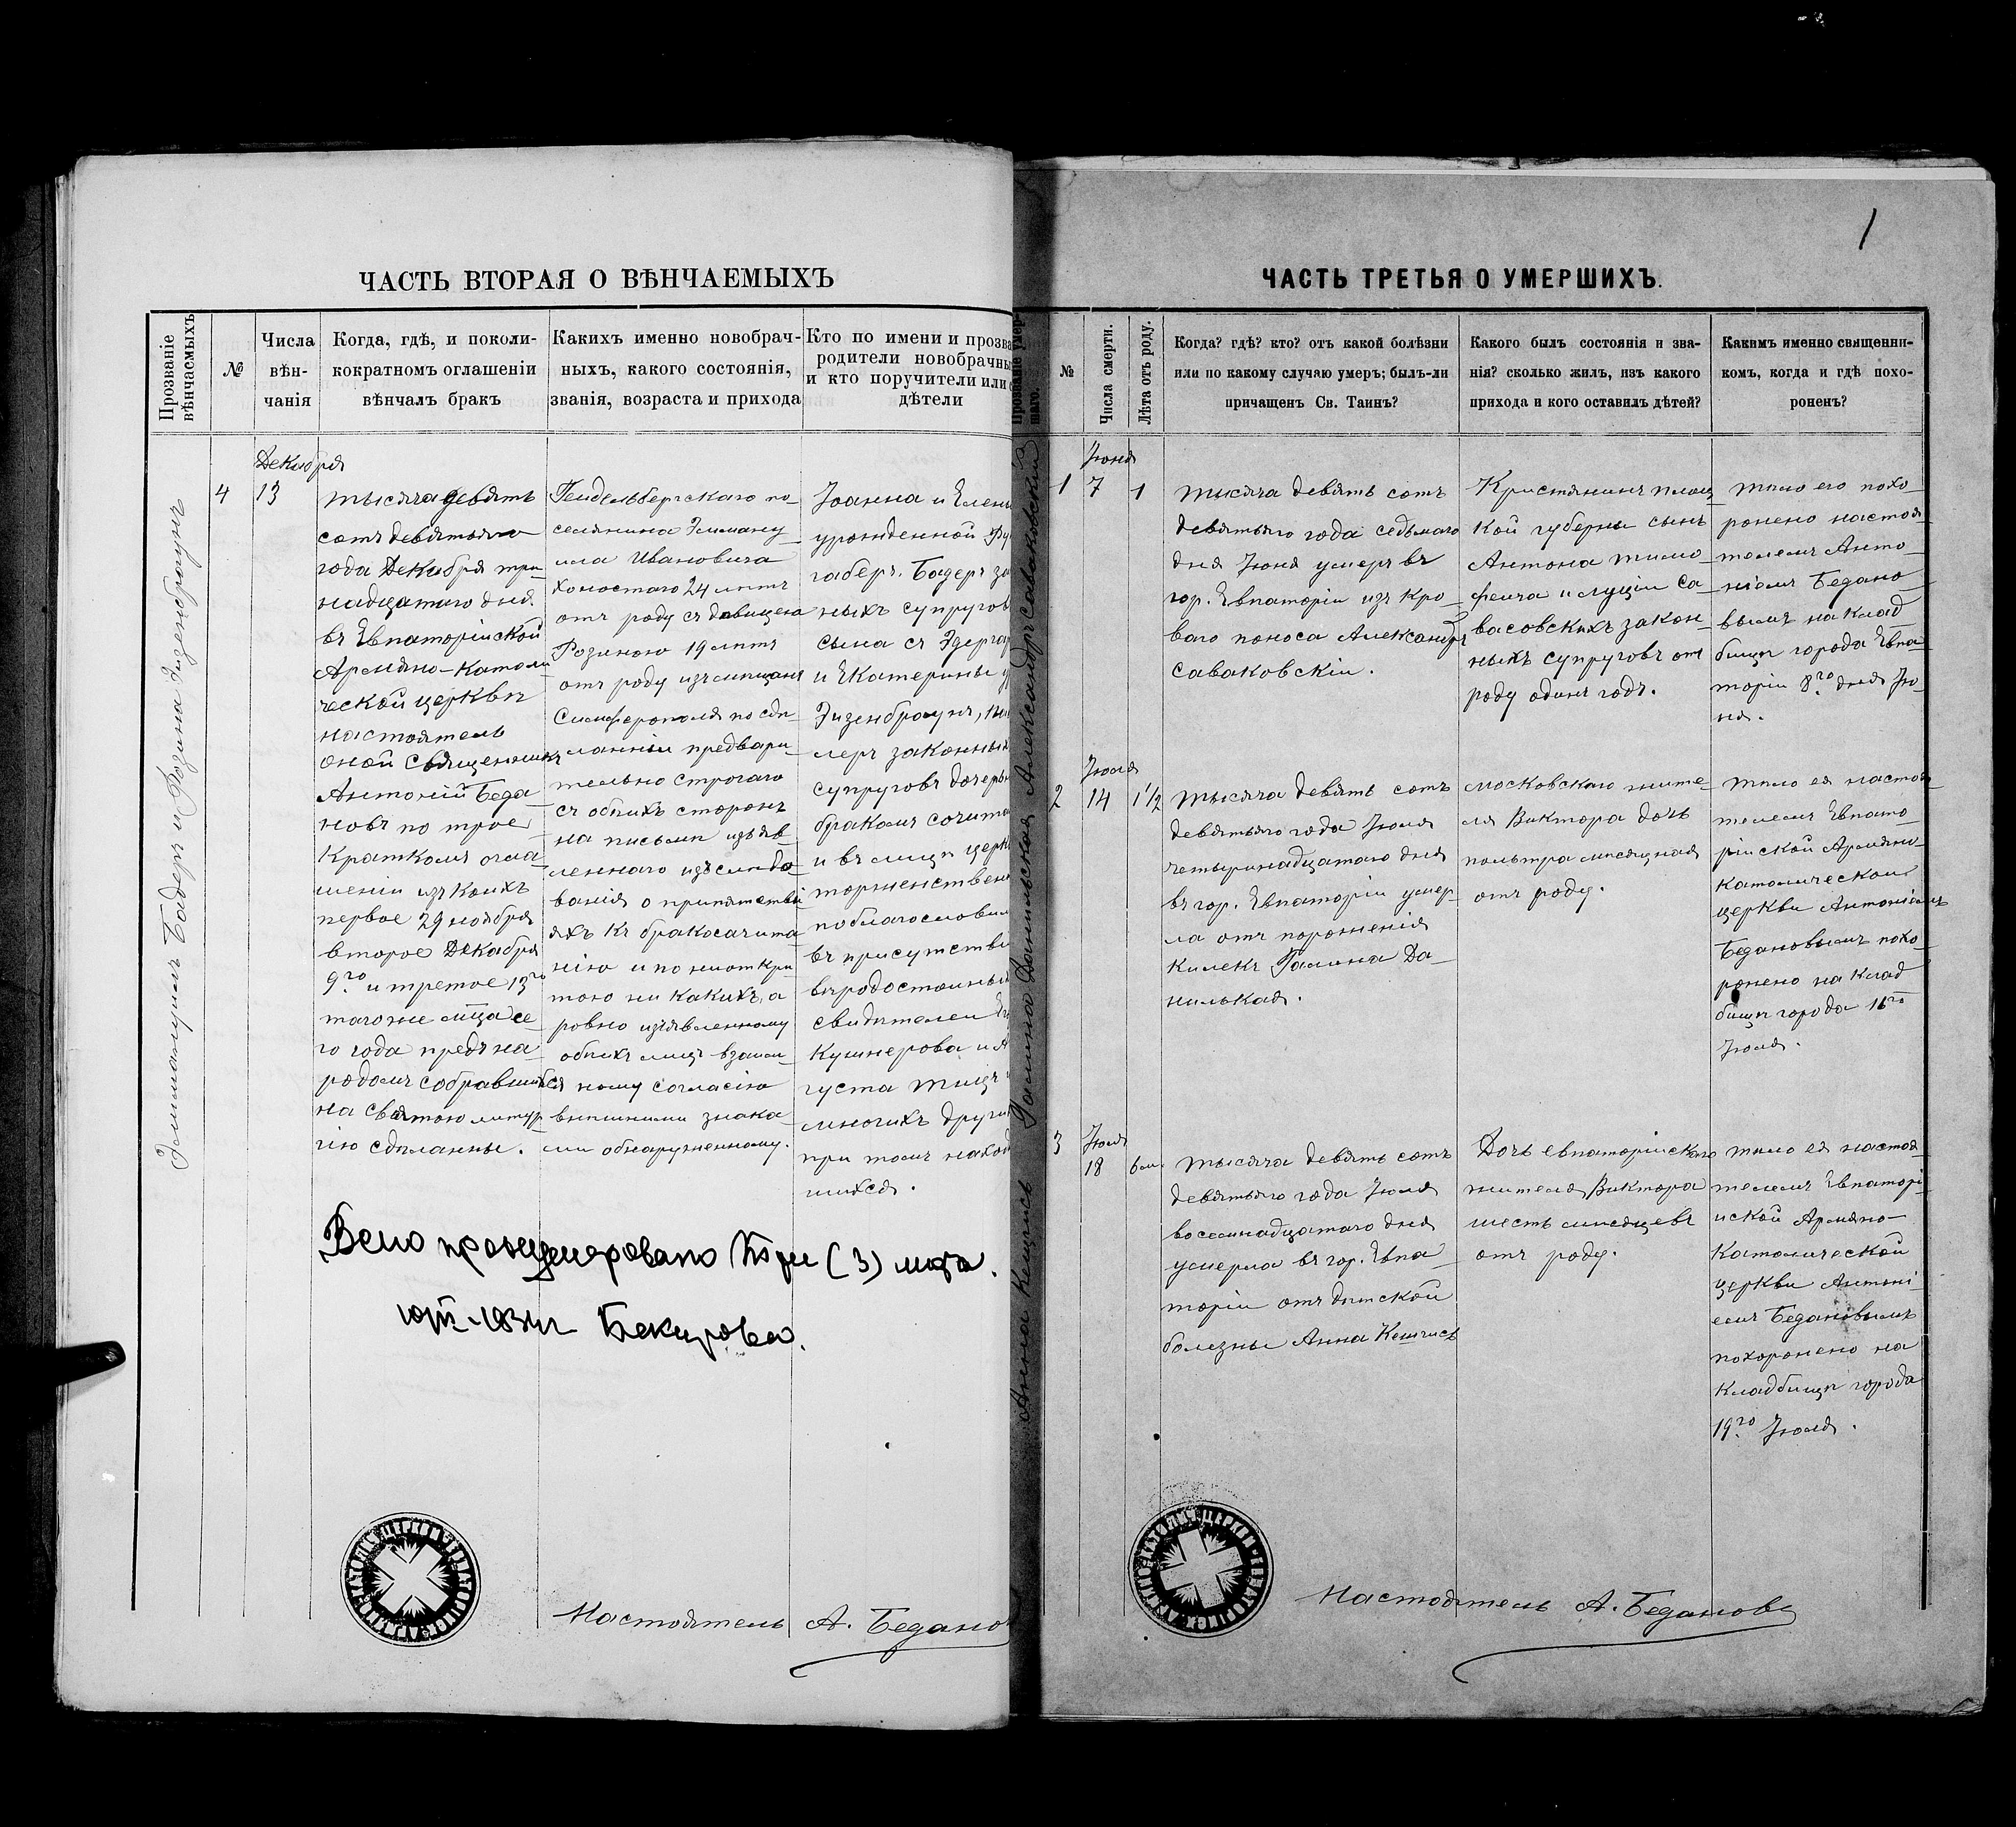 ЧАСТЬ ВТОРАЯ О ВѢНЧАЕМЫХЪ
Прозваніе вѣнчаемыхъ
№
Числа
вѣн-
чанія
Когда, гдѣ, и поколи-
кократномъ оглашеніи
вѣнчалъ бракъ
Какихъ именно новобрач-
ныхъ, какого состоянія,
званія, возраста и прихода
Кто по имени и прозва
родители новобрачны
и кто поручители или
дѣтели
Эммануилъ Бадеръ и Розина Эизенбраунъ
4
Декабря
13
тысяча девять
сотъ девятаго
года Декабря три-
надцатаго дня
въ Евпаторійской
Армяно-католи
ческой церквѣ
настоятель
оной священникъ
Антоній Беда-
новъ по трое-
кратномъ огла-
шеніи изъ коихъ
первое 29 ноября
второе Декабря
9го и третое 13го
тогоже мѣца се
го года предъ на-
родомъ собравшимся
на святою литур-
гію сдѣланные.
Гейдельбергскаго по-
селянина Эммануи-
ила Ивановича
холостого 24 лѣтъ
отъ роду съ дѣвицею
Розиною 19 лѣтъ
отъ роду изъ мѣщанъ
Симферополя по сдѣ-
ланніи предвари-
тельно строгаго
съ обѣихъ сторонъ
на письмѣ изъяв-
леннаго изслѣдо-
ванія о припятстві
яхъ къ бракосачита
нію и по неоткры
тою ни какихъ, а
ровно изъявленному
обѣихъ лицъ взаим
ному согласію
внѣшними знака-
ми обнаруженному.
Іоанна и Елены
урожденной
габеръ. Бадеръ за
ныхъ супругов
сына съ Эдегар
и Екатерины
Эизенбраунъ,
леръ законны
супруговъ дочерью
бракомъ сочита
и въ лицѣ церк
торжественно
поблагословил
въ присутстви
вѣродостойны
свидѣтелей
Кушнерова и А
густа Тицъ
многихъ други
при томъ наход
шихся.
Всего пронумеровано три (3) листа.
Бекирова.
Настоятель А. Беданов
ЧАСТЬ ТРЕТЬЯ О УМЕРШИХЪ.
1
Прозваніе умер-
шаго.
№
Числа смерти.
Лѣта отъ роду.
Когда? гдѣ? кто? отъ какой болѣзни
или по какому случаю умеръ; былъ-ли
причащенъ Св. Таинъ?
Какого былъ состоянія и зва-
нія? сколько жилъ, изъ какого
прихода и кого оставилъ дѣтей?
Какимъ именно священни-
комъ, когда и гдѣ похо-
роненъ?
Александръ Саваковскій
1
Іюня
7
1
тысяча девять сотъ
девятаго года седьмаго
дня Іюня умеръ въ
гор. Евпаторіи изъ кро-
ваго поноса Александръ
Саваковскіи.
Кристянинъ
кой губерны сынъ
Антона тимо-
феича и луціи Са-
васовскихъ закон-
ныхъ супруговъ отъ
роду одинъ годъ.
тѣло его похо-
ронено настоя
телемъ Анто-
ніемъ Бедано-
вымъ на клад
бищѣ города Евпа
торіи 8го дня Ію-
ня.
Галина Данильская
2
Іюля
14
1½
тысяча девять сотъ
девятаго года Іюля
четырнадцатаго дня
въ гор. Евпаторіи умер-
ла отъ пороженія
килекъ Галина Да-
нилькая.
московскаго жите-
ля Виктора дочь
польтра мѣсяцная
отъ роду.
тѣло ея настоя
телемъ Евпато-
рійской Армяно-
католической
церкви Антоніемъ
Бедановымъ похо-
ронено на клад
бищѣ города 16го
Іюля.
Анна Кешчись
3
Іюля
18
6 м.
тысяча девять сотъ
девятаго года Іюля
восемнадцатаго дня
умерла въ гор. Евпа
торіи отъ дѣтской
болезны Анна Кешчись
Дочь евпаторійскаго
жителя Виктора
шесть мѣсяцевъ
отъ роду.
тѣло ея настоя-
телемъ Евпаторі-
йской Армяно-
католической
церкви Антоні
емъ Бедановымъ
похоронено на
кладбищѣ города
19го Іюля.
Настоятель А. Бедановъ